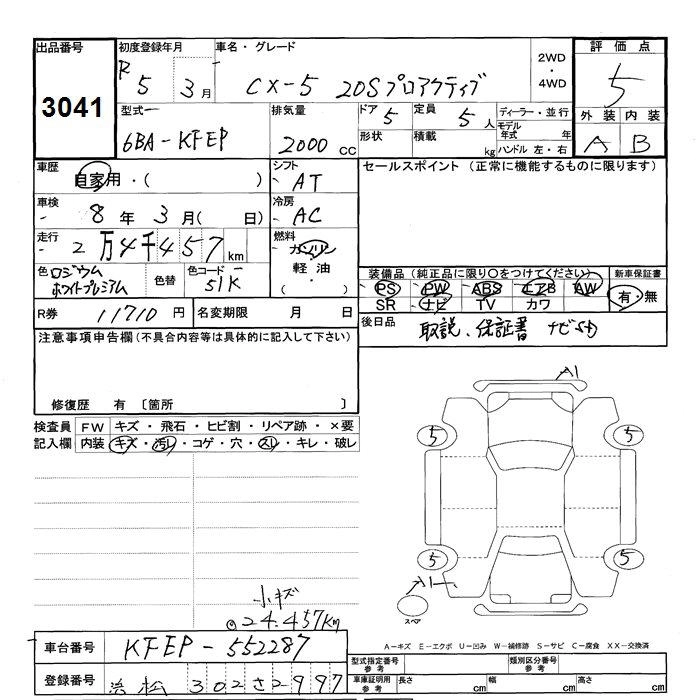 出品番号 初度登録年月 車名・グレード 評価点
3041 R 5 3月 CX-5 20Sプロアクティブ 2WD・4WD 5
型式 6BA-KFEP 排気量 2000 cc ドア 5 定員 5 人 ディーラー・並行 外装 内装
形状 積載 kg モデル年式 年 ハンドル 左・右 A B
車歴 自家用・( ) シフト AT セールスポイント (正常に機能するものに限ります)
車検 8年 3月( 日) 冷房 AC
走行 2万4千457km 燃料 ガソリン 軽油 ( ・ )
色 ロジウムホワイトプレミアム 色替 色コード 51K 装備品(純正品に限り○をつけてください) 新車保証書
PS PW ABS エアB AW 有・無
SR ナビ TV カワ
R券 11710 円 名変期限 月 日 後日品 取説、保証書
注意事項申告欄(不具合内容等は具体的に記入して下さい)
修復歴 有 〔箇所 〕
A1
検査員記入欄 FW キズ・飛石・ヒビ割・リペア跡・×要
内装 キズ・汚レ・コゲ・穴・スレ・キレ・破レ
5 5
5 5
A1
スペア
小キズ
24.457Km
A-キズ E-エクボ U-凹み W-補修跡 S-サビ C-腐食 XX-交換済
車台番号 KFEP-552287
型式指定番号参考 類別区分番号参考
登録番号 浜松 302さ2997
車庫証明用参考 長さ cm 幅 cm 高さ cm